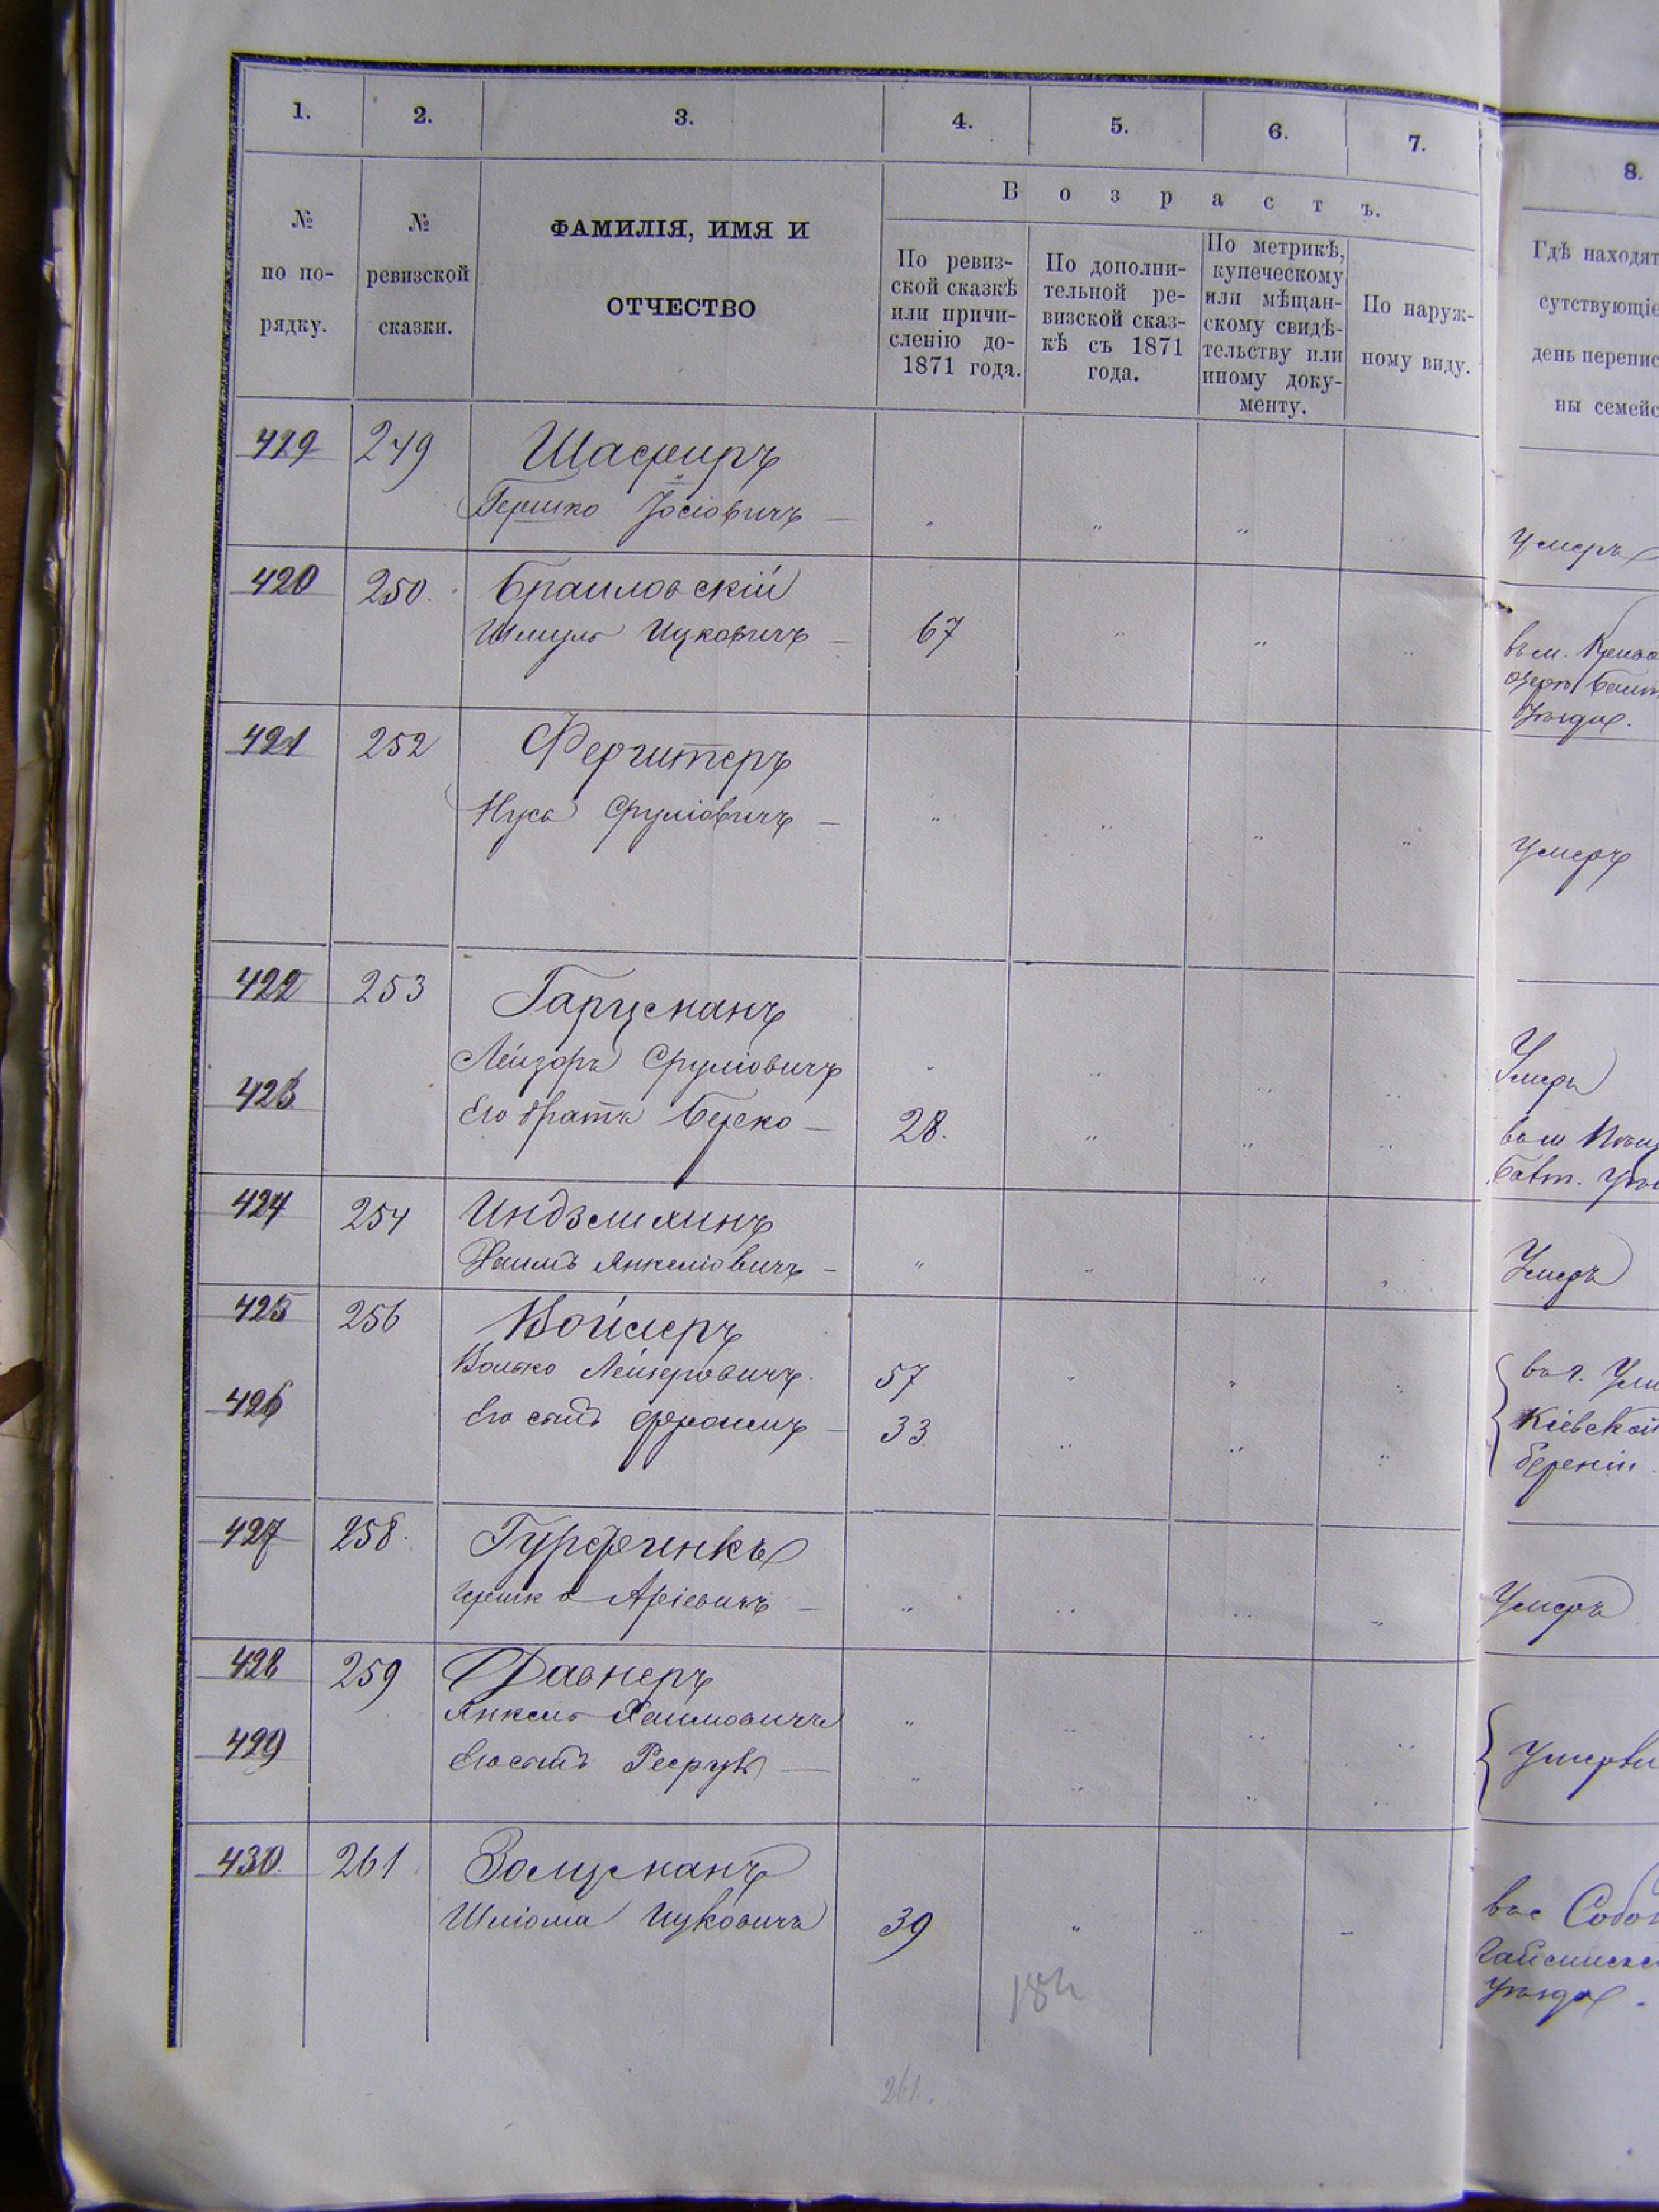 1. 2. 3. 4. 5. 6. 7.
8.
В о з р а с т ъ.
№
по по-
рядку.
№
ревизской
сказки.
ФАМИЛІЯ, ИМЯ И
ОТЧЕСТВО
По ревиз-
ской сказкѣ
или причи-
сленію до-
1871 года.
По дополни-
тельной ре-
визской сказ-
кѣ съ 1871
года.
По метрикѣ,
купеческому
или мѣщан-
скому свидѣ-
тельству или
иному доку-
менту.
По наруж-
ному виду.
Гдѣ находят
сутствующіе
день перепис
ны семейс
419 249 Шафиръ
Гершко Іосіовичъ — " " " "
умеръ
420 250. Браиловскій
Шмуль Ицковичъ — 67 " " "
въ м. Криво
озерѣ Балт
Уѣзда.
421 252 Фергитеръ
Нуса Сруліовичъ — " " " "
умеръ
422 253 Гарцманъ
Лейзоръ Сруліовичъ " " " "
Умеръ
423 Его братъ Берко — 28. " " "
въ м
Балт. Уѣз
424 254
Хаимъ Янкеліовичъ — " " " "
Умеръ
425 256 Войлеръ
Волько Лейзеровичъ. 57 " " "
въ г. Ума
426 Его сынъ Фроимъ — 33 " " "
Кіевской
берніи
427 258. Гурфинкъ
Гершко Аріевичъ — " " " "
Умеръ
428 259
Янкель Хаимовичъ " " " "
429 Его сынъ — " " " "
Умерли
430. 261 Золцманъ
Шліома Ицковичъ 39 " " "
въ с Собол
Гайсинска
Уѣзда.
184
261.